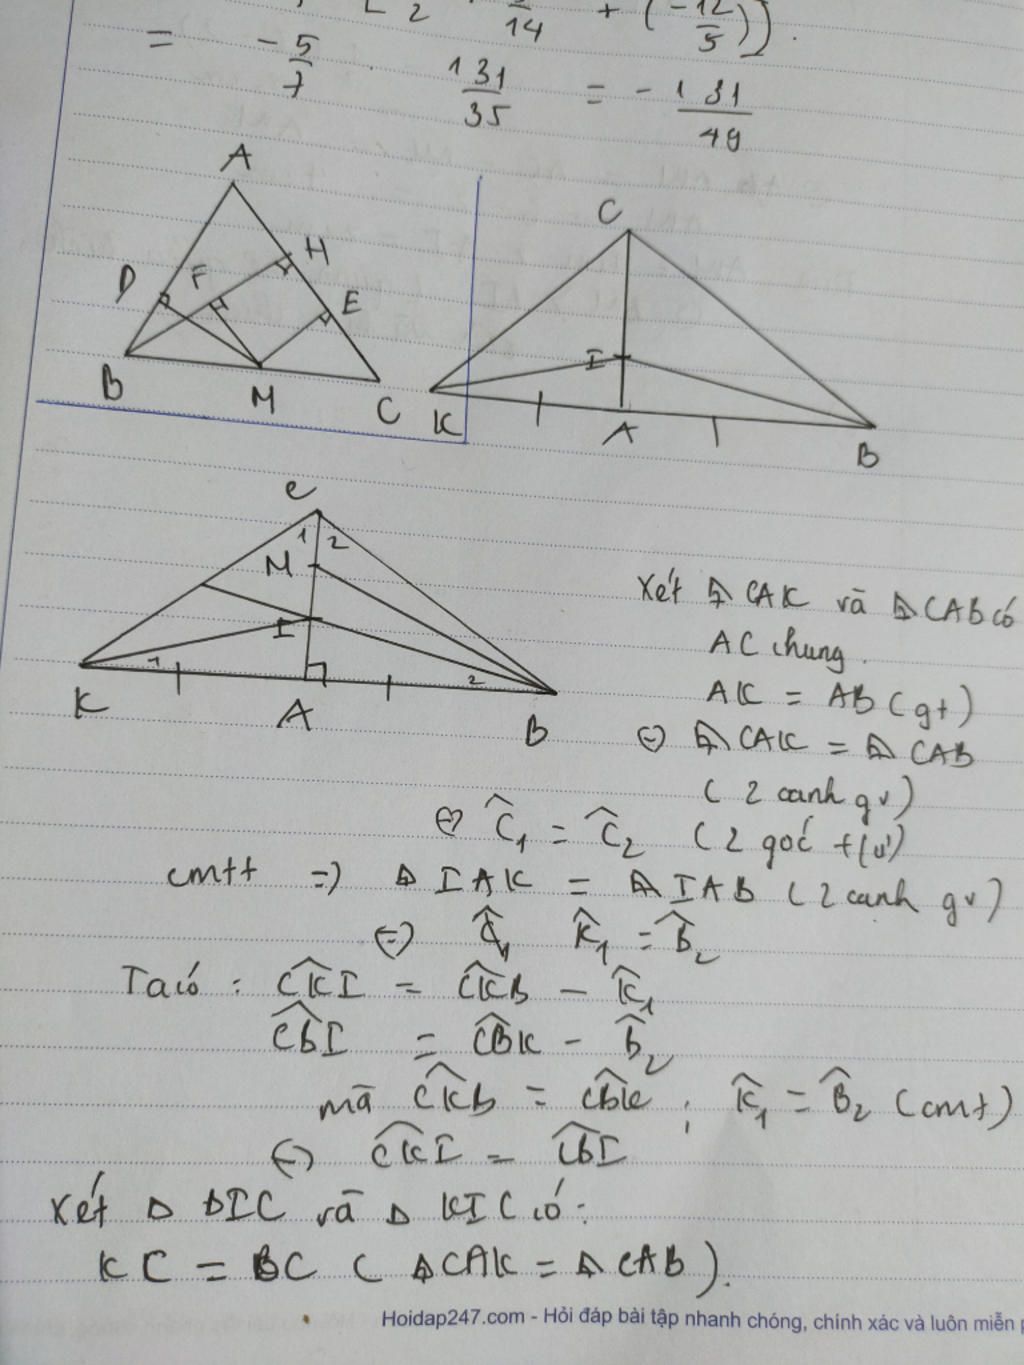 2 14 + (-12/5)].
= -5/7 . 131/35 = -131/49
A
D F H
E
B M C
C
I
K A B
C
1 2
M
I
1 2
K A B
Xét ⊿ CAK và ⊿ CAB có
AC chung.
AK = AB (gt)
⇔ ⊿ CAK = ⊿ CAB
( 2 cạnh gv)
⇔ Ĉ₁ = Ĉ₂ ( 2 góc t/ứ)
cmtt ⇒ ⊿ IAK = ⊿ IAB ( 2 cạnh gv)
⇔ K̂₁ = B̂₂
Ta có : CKI = CKB - K̂₁
CBI = CBK - B̂₂
mà CKB = CBK ; K̂₁ = B̂₂ (cmt)
⇔ CKI = CBI
Xét Δ BIC và Δ KIC có :
KC = BC ( ⊿ CAK = ⊿ CAB ).
Hoidap247.com - Hỏi đáp bài tập nhanh chóng, chính xác và luôn miễn